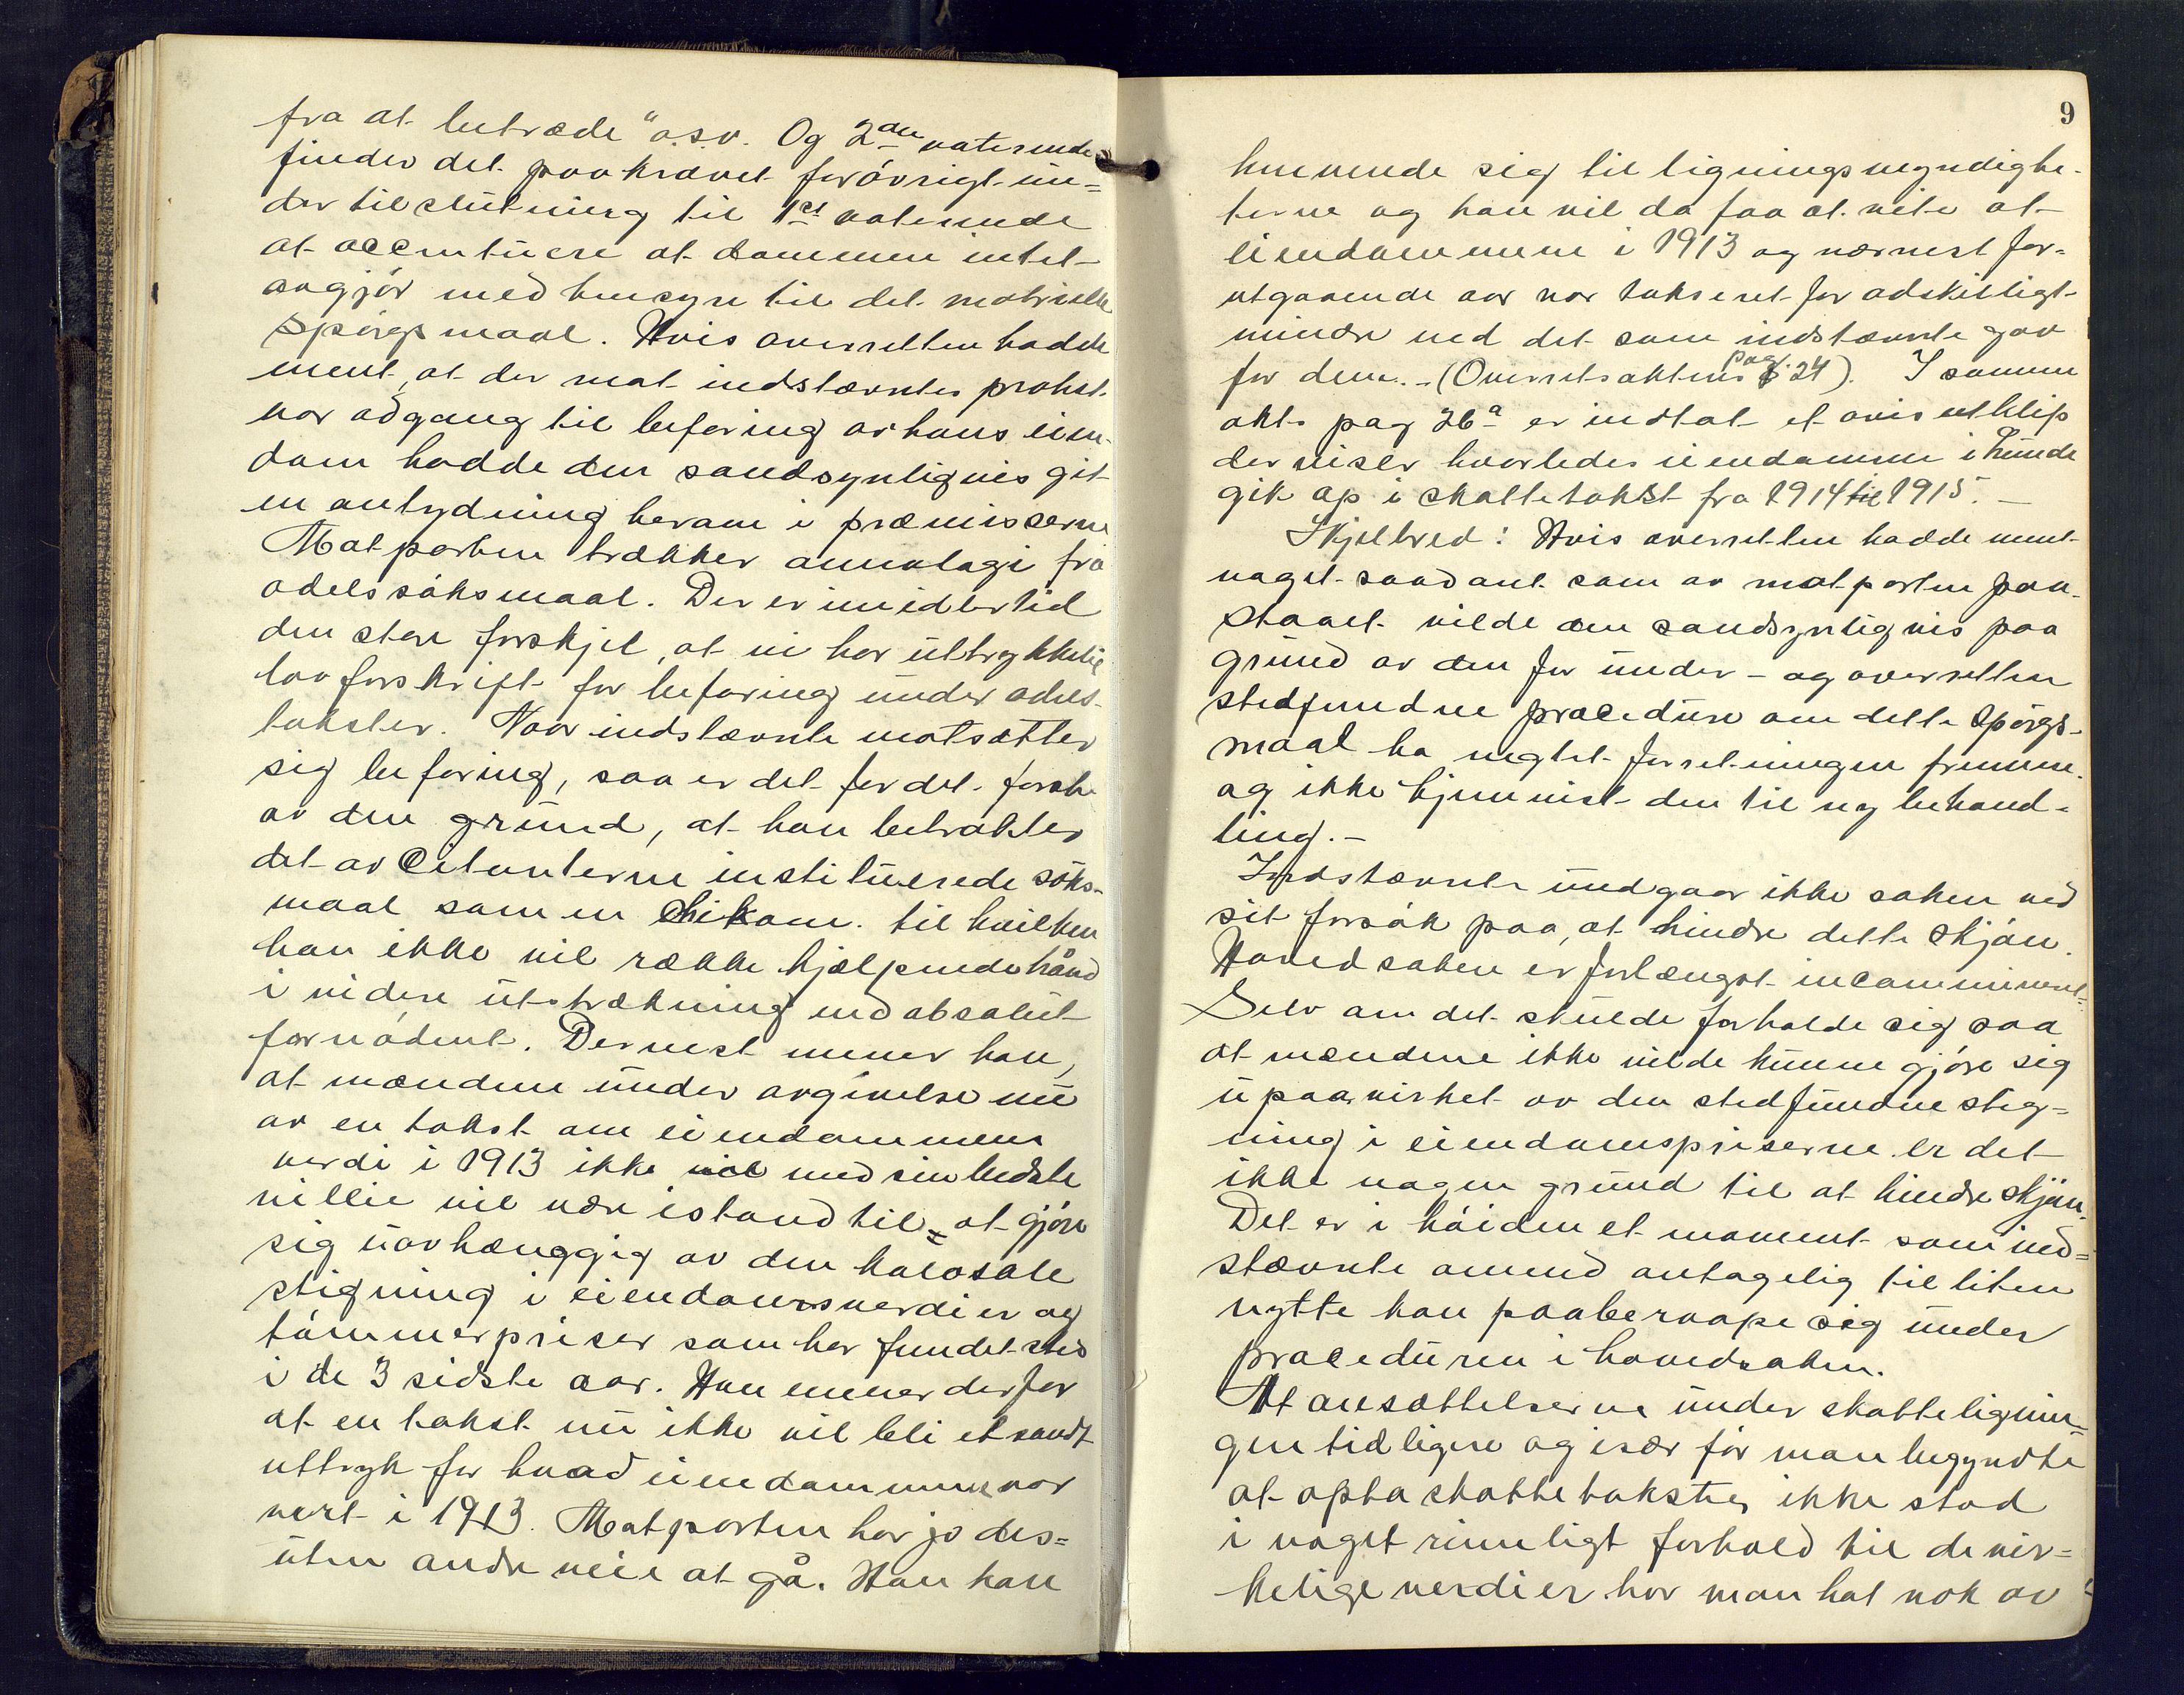 fra at betræde" o.s.v. Og 2den voterende
finder det paakrævet forøvrigt un=
der tilslutning til 1ste voterende
at accentuere at dommen intet
avgjør med hensyn til det matrielle
spørgsmaal. Hvis overretten hadde
ment, at der mot indstævntes protest
var adgang til befaring av hans eien-
dom hadde den sandsynligvis git
en antydning herom i præmisserne
Motparten trækker annalogi fra
odelssøksmaal. Der er imidlertid
den store forskjel, at vi har uttrykkelig
lovforskrift for befaring under odels-
takster. Naar indstævnte motsætter
sig befaring, saa er det for det første
av den grund, at han betrakter
det av Citanterne instituerede søks-
maal som en chikane til hvilken
han ikke vil række hjælpende hånd
i videre utstrækning end absolut
fornødent. Dernæst mener han,
at mændene under avgivelse nu
av en takst om eiendommens
verdi i 1913 ikke vil med sin bedste
villie vil være istand til at gjøre
sig uavhænggig av den kolosale
stigning i eiendomsverdier og
tømmerpriser som har fundet sted
i de 3 sidste aar. Han mener derfor
at en takst nu ikke vil bli et sandt
uttryk for hvad eiendommene var
vert i 1913. Motparten har jo des=
uten andre veie at gå. Han kan
9
henvende sig til ligningsmyndighe-
terne og han vil da faa at vite at
eiendommene i 1913 og nærmest for=
utgaaende aar var takseret for adskilligt
mindre end det som indstævnte gav
for dem. - (Overretsaktens pag. 24). I samme
akts pag 26a er indtat et avisutklip
der viser hvorledes eiendomme i Trunde
gik op i skattetakst fra 1914 til 1915. -
Skjelbred: Hvis overretten hadde ment
noget saadant som av motparten paa-
staaet vilde den sandsynligvis paa
grund av den for under- og overretten
stedfundne procedure om dette spørgs-
maal ha negtet forretningen fremme
og ikke hjemvist den til ny behand=
ling. -
Indstævnte undgaar ikke saken ved
sit forsøk paa, at hindre dette skjøn.
Hovedsaken er forlængst incamminert=
Selv om det skulde forholde sig saa
at mændene ikke vilde kunne gjøre sig
upaavirket av den stedfundne stig=
ning i eiendomspriserne er det
ikke nogen grund til at hindre skjøn.
Det er i høiden et moment som ind=
stævnte omend antagelig til liten
nytte kan paaberaape sig under
proceduren i hovedsaken.
At ansættelserne under skattelignin=
gen tidligere og især før man begyndte
at opta skattetakster, ikke stod
i noget rimeligt forhold til de vir=
kelige verdier har man hat nok av